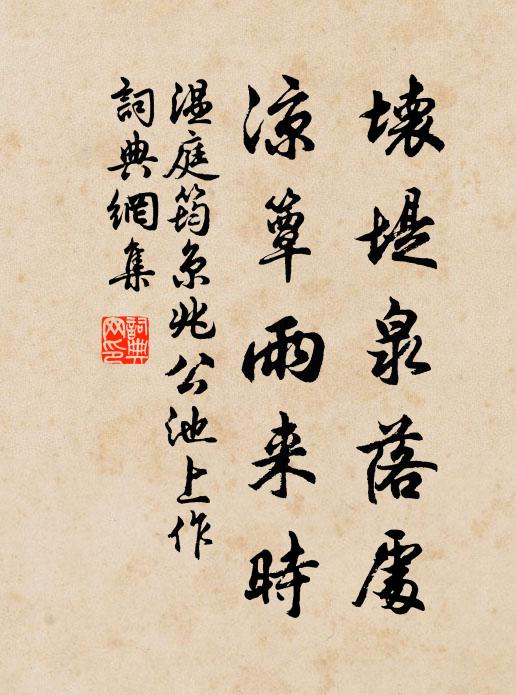 壞堤泉落處
凉簟雨来時
温庭筠京兆公池上作
詞典網集
詞典網印